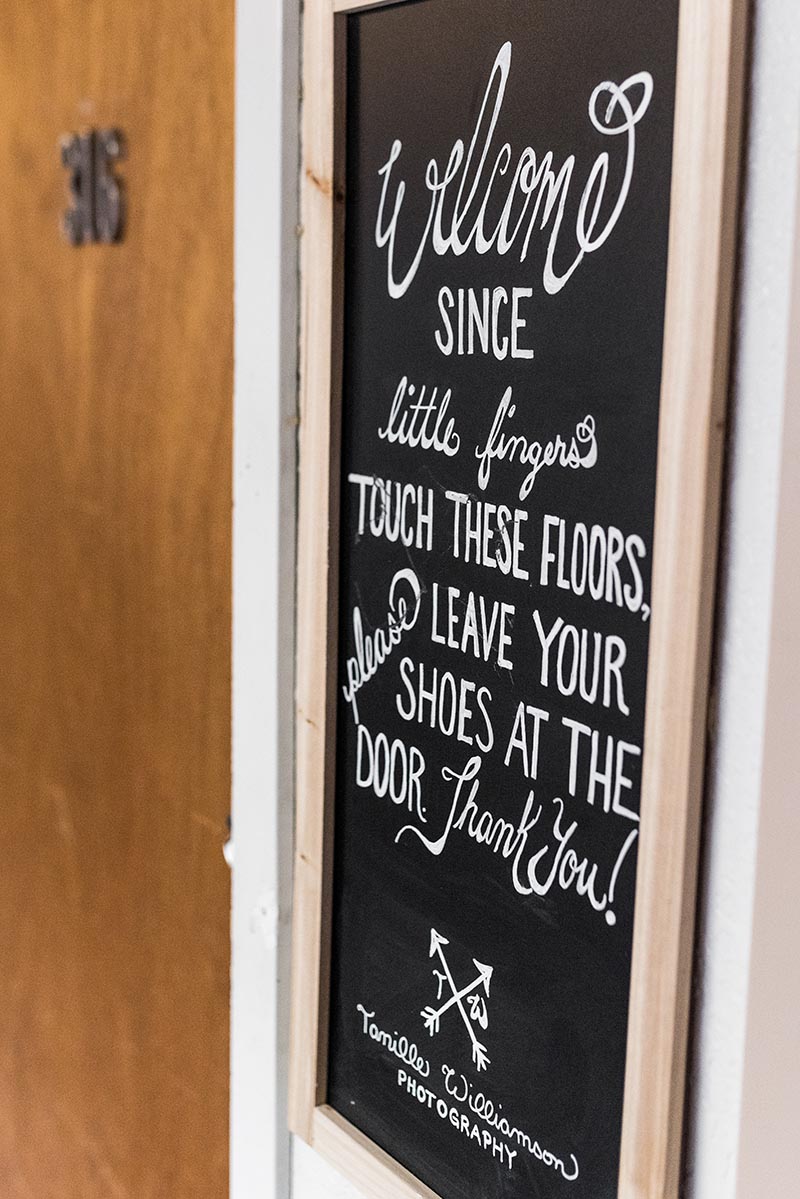 316
Welcome
SINCE
little fingers
TOUCH THESE FLOORS,
please LEAVE YOUR
SHOES AT THE
DOOR. Thank You!
T W
Tanille Williamson
PHOTOGRAPHY